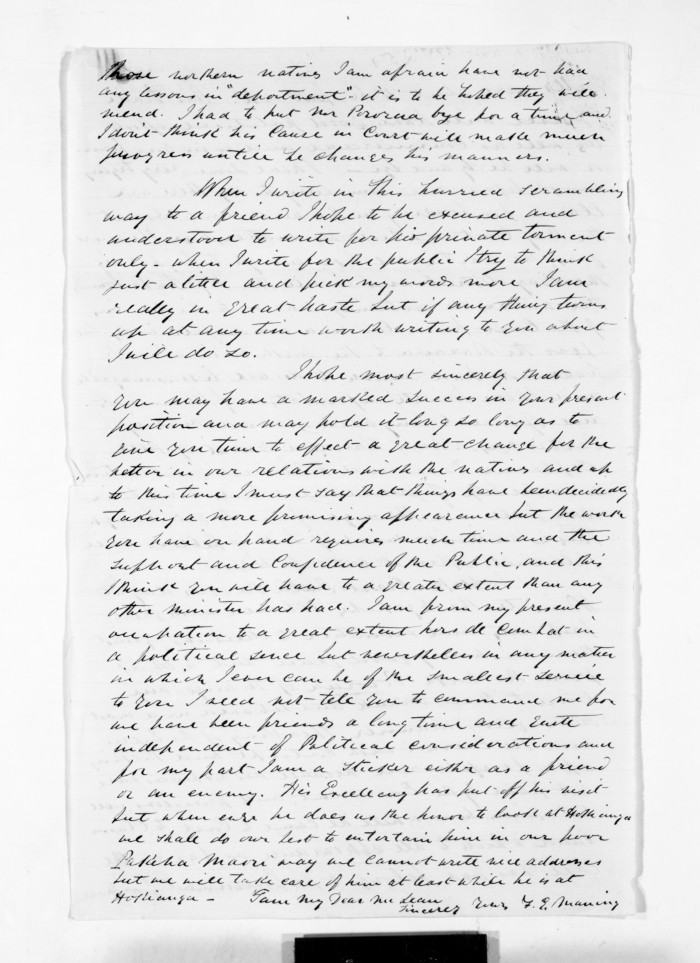 Those northern natives I am afraid have not had
any lessons in "deportment" - it is to be hoped they will
mend. I had to put Mr bye for a time and
I don't think his Cause in Court will make much
progress untill he changes his manners.
When I write in this hurried scrambling
way to a friend I hope to be excused and
understood to write for his private torment
only - when I write for the public I try to think
just a little and pick my words more I am
really in great haste but if any thing turns
up at any time worth writing to you about
I will do so.
I hope most sincerely that
you may have a marked success in your present
position and may hold it long so long as to
give you time to effect a great change for the
better in our relations with the natives and up
to this time I must say that things have been decidedly
taking a more promising appearance but the work
you have on hand requires much time and the
support and Confidence of the Public, and this
I think you will have to a greater extent than any
other minister has had. I am from my present
occupation to a great extent hors de Combat in
a political sence but nevertheless in any matter
in which I ever can be of the smallest service
to you I need not tell you to command me for
we have been friends a long time and quite
independent of Political considerations and
for my part I am a sticker either as a friend
or an enemy. His Excellency has put off his visit
but when ever he does us the honor to look at Hokianga
we shall do our best to entertain him in our poor
Pakeha Maori way we cannot write nice addresses
but we will take care of him at least while he is at
Hokianga - I am my Dear McLean
Sincerely yours F. E. Maning